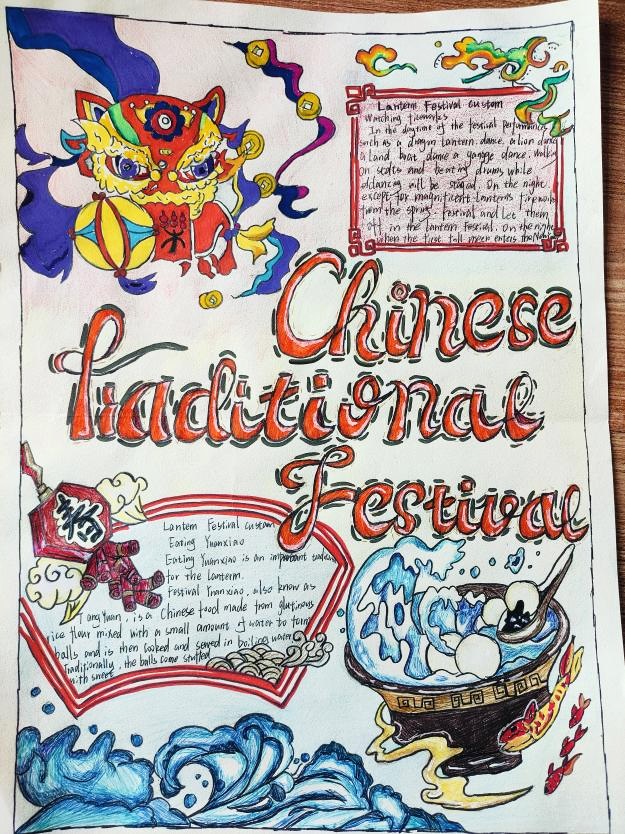 Lantern Festival custom
Watching fireworks
In the daytime of the festival performances
such as a dragon lantern dance, a lion dance
a land boat dance a yangge dance, walking
on scats and beating drums while
ddancing will be staged. On the night
except for magnificent lanterns fireworks
from the spring festival and let them
off in the lantern festival. On the night
when the first full moon enters the
Chinese
Traditional
Festival
春
Lantern Festival custom
Eating Yuanxiao
Eating Yuanxiao is an important
for the lantern.
Festival Yuanxiao, also know as
Tang Yuan, is a Chinese food made from glutinous
rice flour mixed with a small amount of water to form
balls and is then cooked and served in boiling water
Traditionally, the balls come stuffed
with sweet